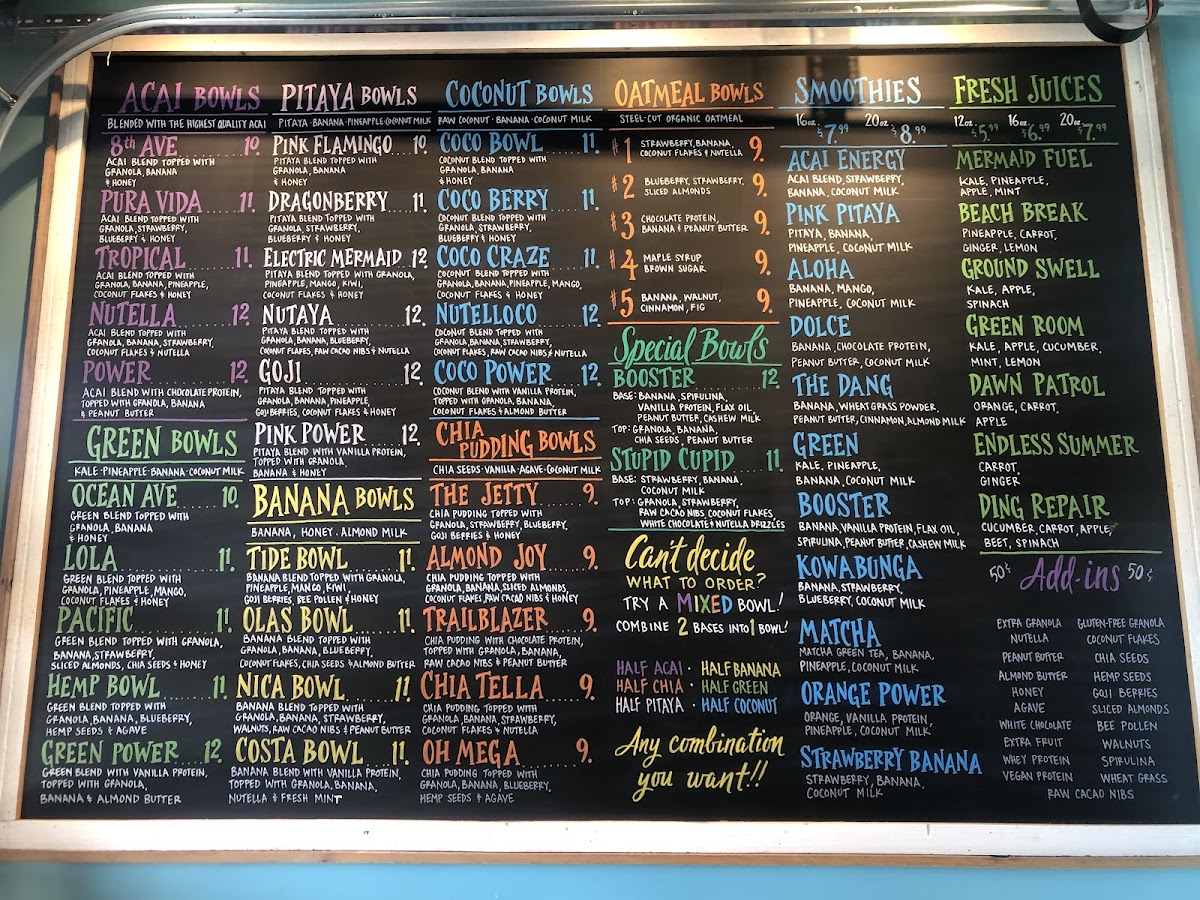 ACAI BOWLS
BLENDED WITH THE HIGHEST QUALITY ACAI
8th AVE 10.
ACAI BLEND TOPPED WITH
GRANOLA, BANANA
& HONEY
PURA VIDA 11.
ACAI BLEND TOPPED WITH
GRANOLA, STRAWBERRY,
BLUEBERRY & HONEY
TROPICAL 11.
ACAI BLEND TOPPED WITH
GRANOLA, BANANA, PINEAPPLE,
COCONUT FLAKES & HONEY
NUTELLA 12.
ACAI BLEND TOPPED WITH
GRANOLA, BANANA, STRAWBERRY,
COCONUT FLAKES & NUTELLA
POWER 12.
ACAI BLEND WITH CHOCOLATE PROTEIN,
TOPPED WITH GRANOLA, BANANA
& PEANUT BUTTER
GREEN BOWLS
KALE·PINEAPPLE·BANANA·COCONUT MILK
OCEAN AVE 10.
GREEN BLEND TOPPED WITH
GRANOLA, BANANA
& HONEY
LOLA 11.
GREEN BLEND TOPPED WITH
GRANOLA, PINEAPPLE, MANGO,
COCONUT FLAKES & HONEY
PACIFIC 11.
GREEN BLEND TOPPED WITH GRANOLA,
BANANA, STRAWBERRY,
SLICED ALMONDS, CHIA SEEDS & HONEY
HEMP BOWL 11.
GREEN BLEND TOPPED WITH
GRANOLA, BANANA, BLUEBERRY,
HEMP SEEDS & AGAVE
GREEN POWER 12.
GREEN BLEND WITH VANILLA PROTEIN,
TOPPED WITH GRANOLA,
BANANA & ALMOND BUTTER
PITAYA BOWLS
PITAYA·BANANA·PINEAPPLE·COCONUT MILK
PINK FLAMINGO 10.
PITAYA BLEND TOPPED WITH
GRANOLA, BANANA
& HONEY
DRAGONBERRY 11.
PITAYA BLEND TOPPED WITH
GRANOLA, STRAWBERRY,
BLUEBERRY & HONEY
ELECTRIC MERMAID 12.
PITAYA BLEND TOPPED WITH GRANOLA,
PINEAPPLE, MANGO, KIWI,
COCONUT FLAKES & HONEY
NUTAYA 12.
PITAYA BLEND TOPPED WITH
GRANOLA, BANANA, BLUEBERRY,
COCONUT FLAKES, RAW CACAO NIBS & NUTELLA
GOJI 12.
PITAYA BLEND TOPPED WITH
GRANOLA, BANANA, PINEAPPLE,
GOJI BERRIES, COCONUT FLAKES & HONEY
PINK POWER 12.
PITAYA BLEND WITH VANILLA PROTEIN,
TOPPED WITH GRANOLA,
BANANA & HONEY
BANANA BOWLS
BANANA, HONEY. ALMOND MILK
TIDE BOWL 11.
BANANA BLEND TOPPED WITH GRANOLA,
PINEAPPLE, MANGO, KIWI,
GOJI BERRIES, BEE POLLEN & HONEY
OLAS BOWL 11.
BANANA BLEND TOPPED WITH
GRANOLA, BANANA, BLUEBERRY,
COCONUT FLAKES, CHIA SEEDS & ALMOND BUTTER
NICA BOWL 11.
BANANA BLEND TOPPED WITH
GRANOLA, BANANA, STRAWBERRY,
WALNUTS, RAW CACAO NIBS & PEANUT BUTTER
COSTA BOWL 11.
BANANA BLEND WITH VANILLA PROTEIN,
TOPPED WITH GRANOLA, BANANA,
NUTELLA & FRESH MINT
COCONUT BOWLS
RAW COCONUT·BANANA·COCONUT MILK
COCO BOWL 11.
COCONUT BLEND TOPPED WITH
GRANOLA, BANANA
& HONEY
COCO BERRY 11.
COCONUT BLEND TOPPED WITH
GRANOLA, STRAWBERRY,
BLUEBERRY & HONEY
COCO CRAZE 11.
COCONUT BLEND TOPPED WITH
GRANOLA, BANANA, PINEAPPLE, MANGO,
COCONUT FLAKES & HONEY
NUTELLOCO 12.
COCONUT BLEND TOPPED WITH
GRANOLA, BANANA, STRAWBERRY,
COCONUT FLAKES, RAW CACAO NIBS & NUTELLA
COCO POWER 12.
COCONUT BLEND WITH VANILLA PROTEIN,
TOPPED WITH GRANOLA, BANANA,
COCONUT FLAKES & ALMOND BUTTER
CHIA
PUDDING BOWLS
CHIA SEEDS·VANILLA·AGAVE·COCONUT MILK
THE JETTY 9.
CHIA PUDDING TOPPED WITH
GRANOLA, STRAWBERRY, BLUEBERRY,
GOJI BERRIES & HONEY
ALMOND JOY 9.
CHIA PUDDING TOPPED WITH
GRANOLA, BANANA, SLICED ALMONDS,
COCONUT FLAKES, RAW CACAO NIBS & HONEY
TRAILBLAZER 9.
CHIA PUDDING WITH CHOCOLATE PROTEIN,
TOPPED WITH GRANOLA, BANANA,
RAW CACAO NIBS & PEANUT BUTTER
CHIA TELLA 9.
CHIA PUDDING TOPPED WITH
GRANOLA, BANANA, STRAWBERRY,
COCONUT FLAKES & NUTELLA
OH MEGA 9.
CHIA PUDDING TOPPED WITH
GRANOLA, BANANA, BLUEBERRY,
HEMP SEEDS & AGAVE
OATMEAL BOWLS
STEEL-CUT ORGANIC OATMEAL
#1 STRAWBERRY, BANANA, 9.
COCONUT FLAKES & NUTELLA
#2 BLUEBERRY, STRAWBERRY, 9.
SLICED ALMONDS
#3 CHOCOLATE PROTEIN, 9.
BANANA & PEANUT BUTTER
#4 MAPLE SYRUP, 9.
BROWN SUGAR
#5 BANANA, WALNUT, 9.
CINNAMON, FIG
Special Bowls
BOOSTER 12.
BASE: BANANA, SPIRULINA,
VANILLA PROTEIN, FLAX OIL,
PEANUT BUTTER, CASHEW MILK
TOP: GRANOLA, BANANA,
CHIA SEEDS, PEANUT BUTTER
STUPID CUPID 11.
BASE: STRAWBERRY, BANANA,
COCONUT MILK
TOP: GRANOLA, STRAWBERRY,
RAW CACAO NIBS, COCONUT FLAKES,
WHITE CHOCOLATE & NUTELLA DRIZZLES
Can't decide
WHAT TO ORDER?
TRY A MIXED BOWL!
COMBINE 2 BASES INTO 1 BOWL!
HALF ACAI · HALF BANANA
HALF CHIA · HALF GREEN
HALF PITAYA · HALF COCONUT
Any combination
you want!!
SMOOTHIES
16oz. $7.99 20oz. $8.99
ACAI ENERGY
ACAI BLEND, STRAWBERRY,
BANANA, COCONUT MILK
PINK PITAYA
PITAYA, BANANA,
PINEAPPLE, COCONUT MILK
ALOHA
BANANA, MANGO,
PINEAPPLE, COCONUT MILK
DOLCE
BANANA, CHOCOLATE PROTEIN,
PEANUT BUTTER, COCONUT MILK
THE DANG
BANANA, WHEATGRASS POWDER,
PEANUT BUTTER, CINNAMON, ALMOND MILK
GREEN
KALE, PINEAPPLE,
BANANA, COCONUT MILK
BOOSTER
BANANA, VANILLA PROTEIN, FLAX OIL,
SPIRULINA, PEANUT BUTTER, CASHEW MILK
KOWABUNGA
BANANA, STRAWBERRY,
BLUEBERRY, COCONUT MILK
MATCHA
MATCHA GREEN TEA, BANANA,
PINEAPPLE, COCONUT MILK
ORANGE POWER
ORANGE, VANILLA PROTEIN,
PINEAPPLE, COCONUT MILK
STRAWBERRY BANANA
STRAWBERRY, BANANA,
COCONUT MILK
FRESH JUICES
12oz. $5.99 16oz. $6.99 20oz. $7.99
MERMAID FUEL
KALE, PINEAPPLE,
APPLE, MINT
BEACH BREAK
PINEAPPLE, CARROT,
GINGER, LEMON
GROUND SWELL
KALE, APPLE,
SPINACH
GREEN ROOM
KALE, APPLE, CUCUMBER,
MINT, LEMON
DAWN PATROL
ORANGE, CARROT,
APPLE
ENDLESS SUMMER
CARROT,
GINGER
DING REPAIR
CUCUMBER, CARROT, APPLE,
BEET, SPINACH
50¢ Add-ins 50¢
EXTRA GRANOLA
NUTELLA
PEANUT BUTTER
ALMOND BUTTER
HONEY
AGAVE
WHITE CHOCOLATE
EXTRA FRUIT
WHEY PROTEIN
VEGAN PROTEIN
GLUTEN-FREE GRANOLA
COCONUT FLAKES
CHIA SEEDS
HEMP SEEDS
GOJI BERRIES
SLICED ALMONDS
BEE POLLEN
WALNUTS
SPIRULINA
WHEAT GRASS
RAW CACAO NIBS